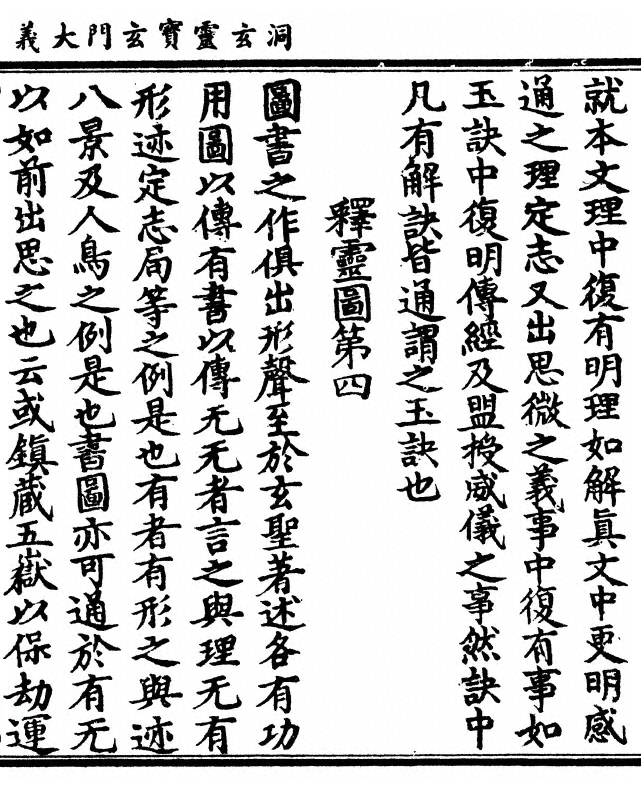 洞玄靈寶玄門大義
就本文理中復有明理如解真文中更明感
通之理定志又出思微之義事中復有事如
玉訣中復明傳經及盟授威儀之事然訣中
凡有解訣皆通謂之玉訣也
釋靈圖第四
圖書之作俱出形聲至於玄聖著述各有功
用圖以傳有書以傳无无者言之與理无有
形迹定志局等之例是也有者有形之與迹
八景及人鳥之例是也書圖亦可通於有无
以如前出思之也云或鎮蔵五嶽以保劫運